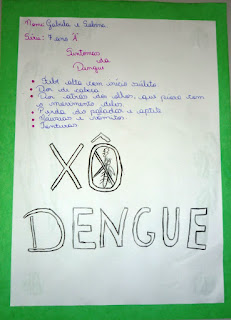 Nome: Gabiela e Sabrina
Série: 7 ano "A"
Sintomas
da
Dengue
• Febre alta com início súbito
• Dor de cabeça
• Dor atrás dos olhos, que piora com
o movimento deles
• Perda do paladar e apetite
• Náuseas e vômitos
• Tonturas
XÔ
DENGUE